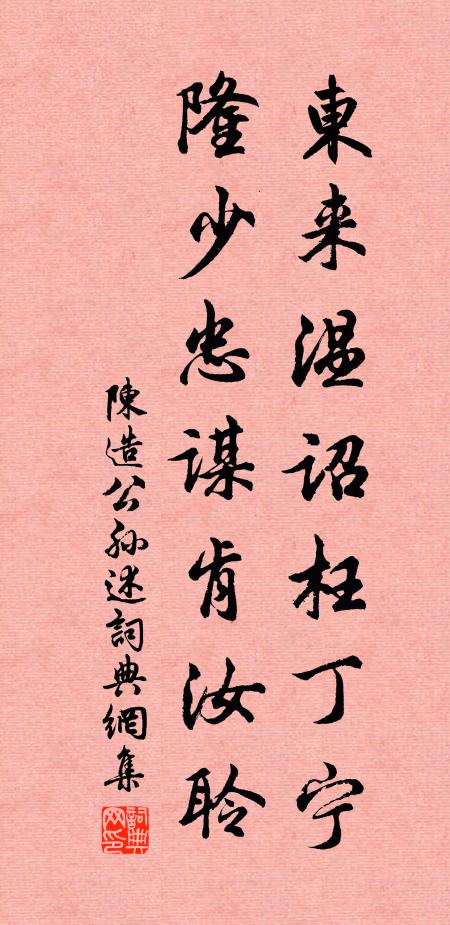 東来温詔枉丁宁
隆少忠谋肯汝聆
陳造公孙述詞典網集
詞典网印